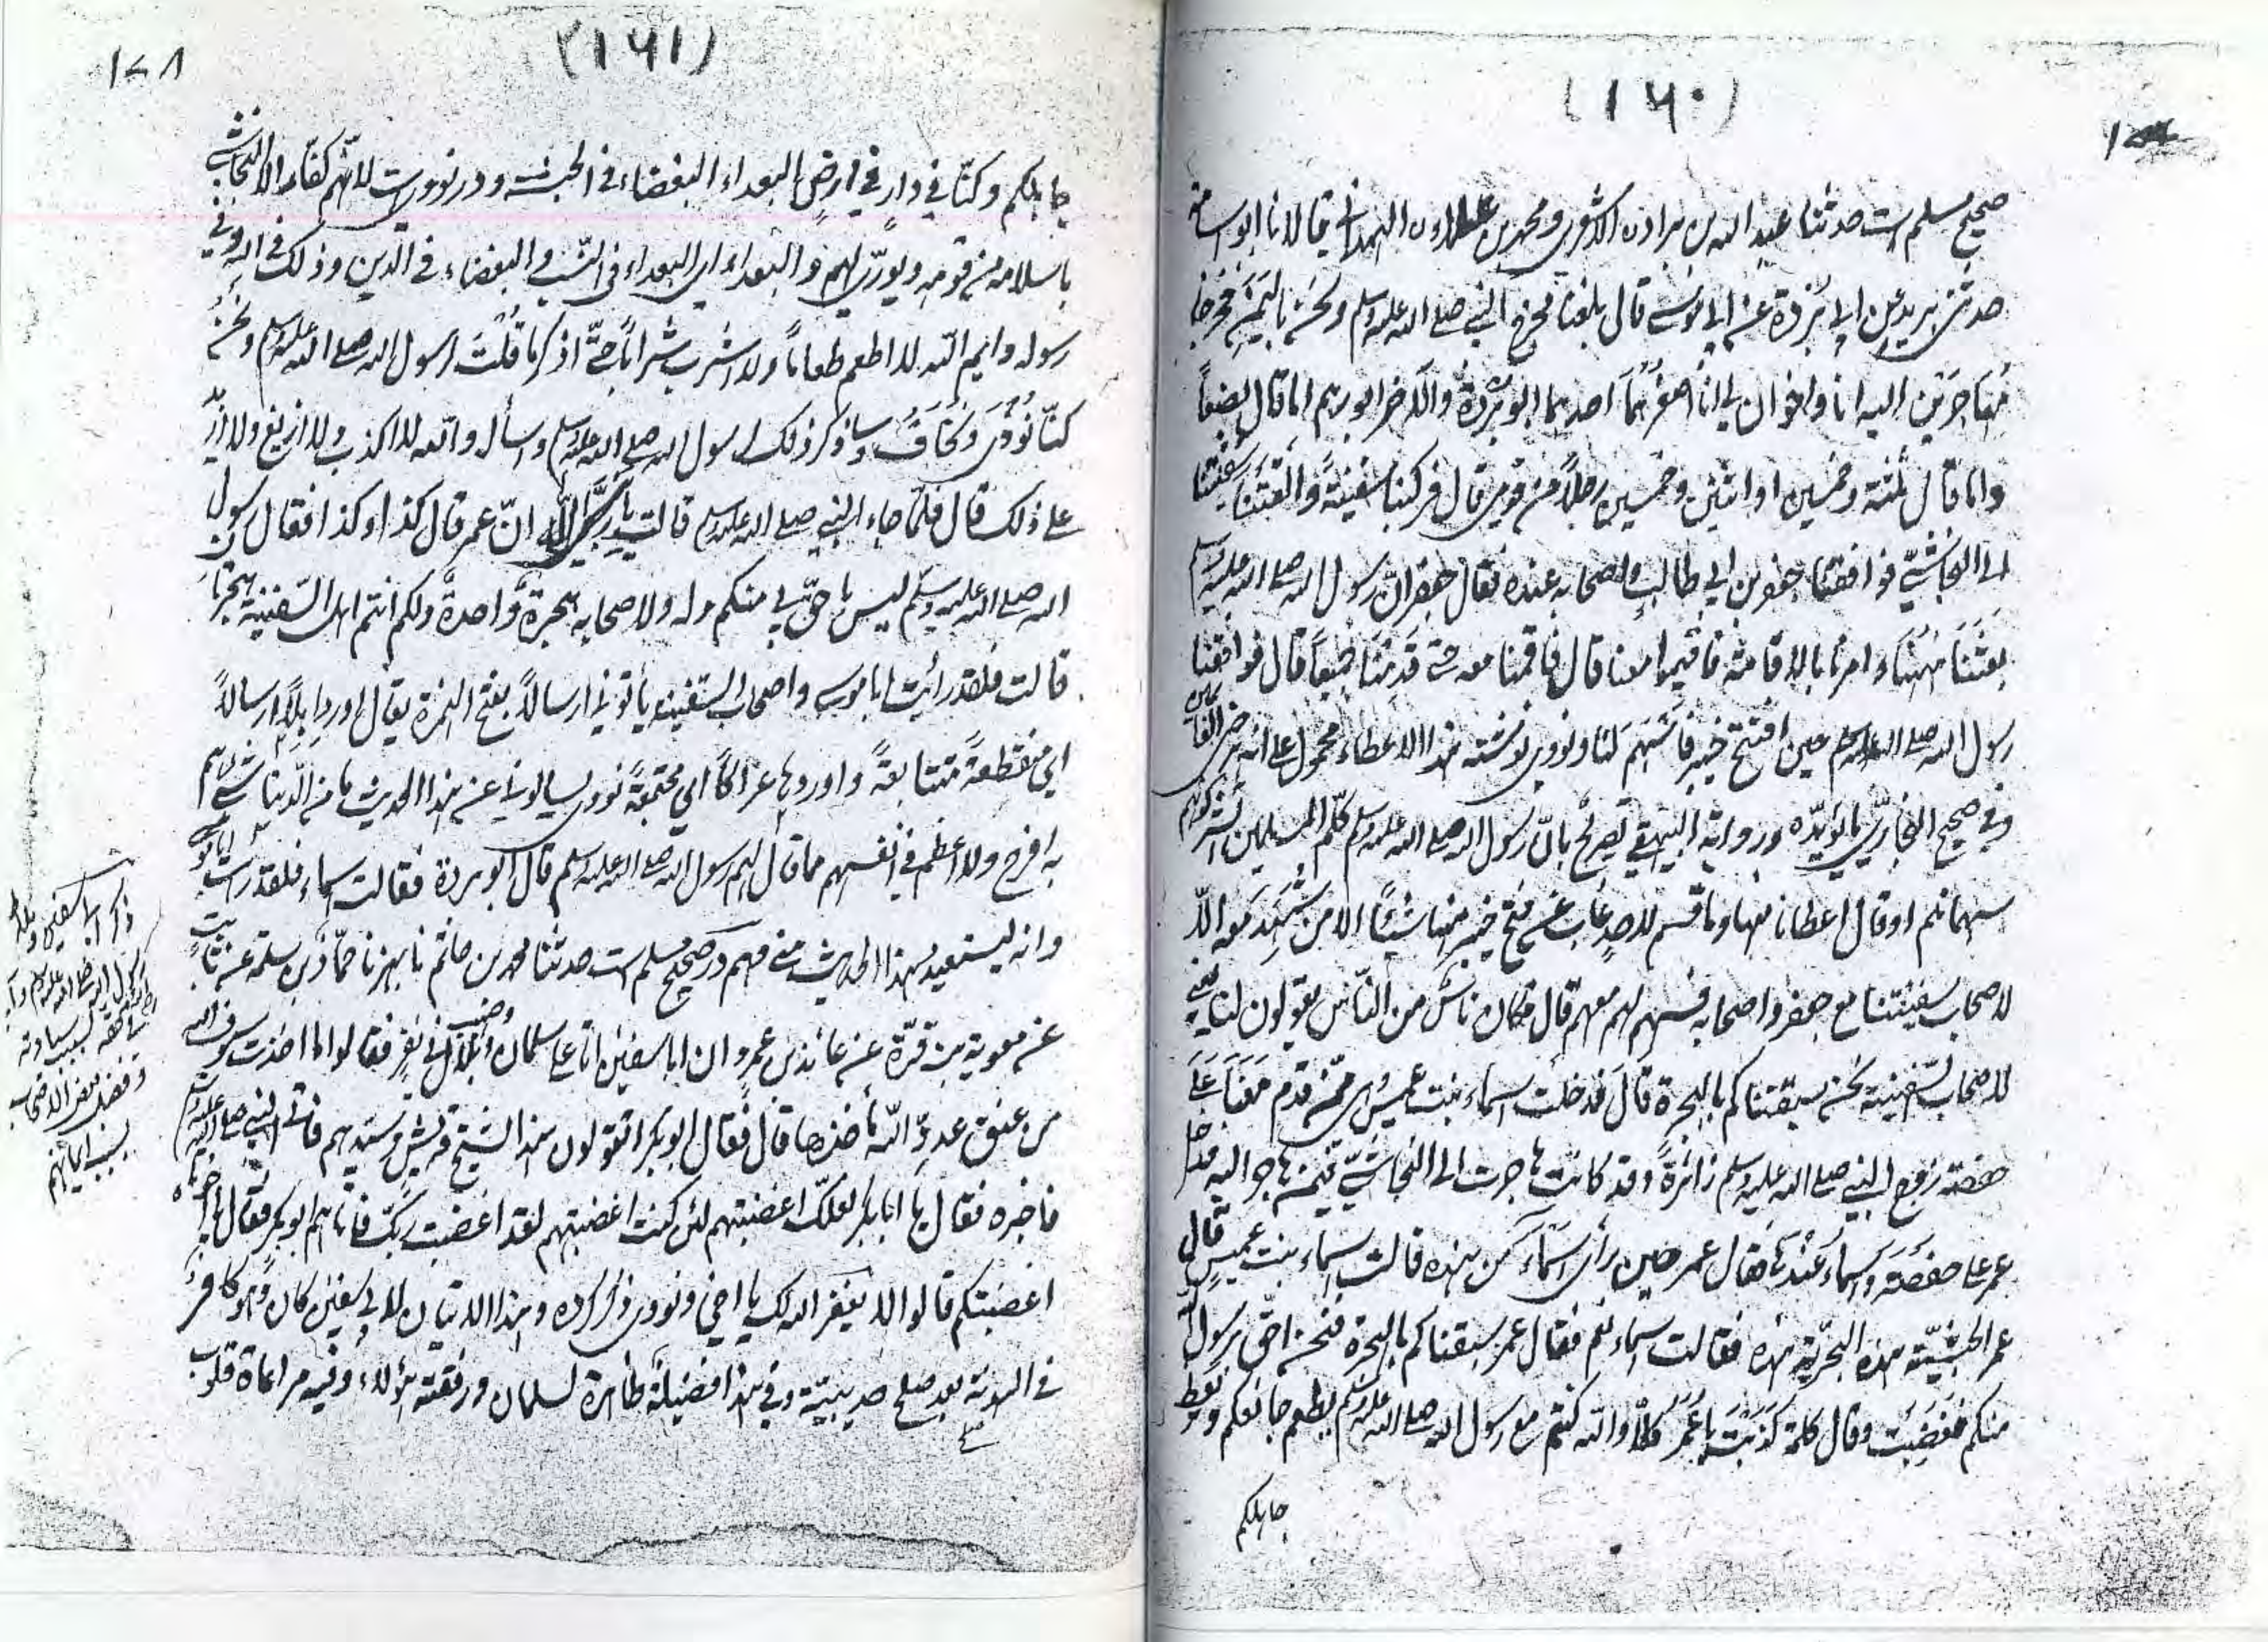 (١٦٠)
صحیح مسلم است حدثنا عبد الله بن براد الاشعری ومحمد بن علاء الهمدانی قالا نا ابو اسامة
حدثنی برید عن ابی بردة عن ابی موسی قال بلغنا مخرج النبی صلی الله علیه وسلم ونحن بالیمن فخرجنا
مهاجرین الیه انا واخوان لی انا اصغرهما احدهما ابو بردة والآخر ابو رهم اما قال بضعاً
واما قال ثلثة وخمسین او اثنین وخمسین رجلاً من قومی قال فرکبنا سفینةً فالقتنا سفینتنا
الی النجاشیّ فوافقنا جعفر بن ابی طالب واصحابه عنده فقال جعفر انّ رسول الله صلی الله علیه وسلم
بعثنا ههنا وامرنا بالاقامة فاقیموا معنا قال فاقمنا معه حتی قدمنا جمیعاً قال فوافقنا
رسول الله صلی الله علیه وسلم حین افتتح خیبر فاسهم لنا ونووی نوشته هذا الاعطاء محمول علی انه برضی الغانمین
وفی صحیح البخاریّ ما یؤیّده وروایة البیهقی تصریح بانّ رسول الله صلی الله علیه وسلم کلّم المسلمین فشرکوهم
سهمانهم او قال اعطانا منها وما قسم لاحدٍ غاب عن فتح خیبر منها شیئاً الا من شهد معه الاّ
لاصحاب سفینتنا مع جعفر واصحابه قسم لهم معهم قال فکان ناسٌ من النّاس یقولون لنا یعنی
لاصحاب السّفینة نحن سبقناکم بالهجرة قال فدخلت اسماء بنت عمیس وهی ممّن قدم معنا علی
حفصة زوج النبی صلی الله علیه وسلم زائرةً وقد کانت هاجرت الی النجاشیّ فیمن هاجر الیه فدخل
عمر علی حفصة واسماء عندها فقال عمر حین رأی اسماء من هذه قالت اسماء بنت عمیس قال
عمر الحبشیّة هذه البحریّة هذه فقالت اسماء نعم فقال عمر سبقناکم بالهجرة فنحن احقّ برسول الله
منکم فغضبت وقال کلمة کذبت یا عمر کلاّ والله کنتم مع رسول الله صلی الله علیه وسلم یطعم جائعکم ویعظ
جاهلکم
(١٦١)
١٧٨
جاهلکم وکنّا فی دار فی ارض البعداء البغضاء فی الحبشة ودر نوویست لانّهم کفّار الا النجاشی
باسلامه من قومه ویورّی لهم والبعداء ای البعداء فی النّسب والبغضاء فی الدّین وذلک فی الله وفی
رسوله وایم الله لا اطعم طعاماً ولا اشرب شراباً حتّی اذکر ما قلت لرسول الله صلی الله علیه وسلم ونحن
کنّا نؤذی ونخاف وساذکر ذلک لرسول الله صلی الله علیه وسلم واسأل والله لا اکذب ولا ازیغ ولا ازید
علی ذلک قال فلمّا جاء النبی صلی الله علیه وسلم قالت یا نبیّ الله انّ عمر قال کذا وکذا فقال رسول
الله صلی الله علیه وسلم لیس باحقّ بی منکم وله ولاصحابه هجرةٌ واحدةٌ ولکم انتم اهل السّفینة هجرتان
قالت فلقد رأیت ابا موسی واصحاب السّفینة یأتونی ارسالاً بفتح الهمزة یقال اورد ابله ارسالاً
ای منقطعةً متتابعةً واوردها عراکاً ای مجتمعةً نووی یسألونی عن هذا الحدیث ما من الدّنیا شیء هم
به افرح ولا اعظم فی انفسهم مما قال لهم رسول الله صلی الله علیه وسلم قال ابو بردة فقالت اسماء فلقد رأیت ابا موسی
وانه لیستعید هذا الحدیث منی وهم در صحیح مسلم است حدثنا محمد بن حاتم نا بهز نا حمّاد بن سلمة عن ثابت
عن معویة بن قرّة عن عائذ بن عمرو ان ابا سفین اتی علی سلمان وصهیب وبلال فی نفر فقالوا ما اخذت سیوف الله
من عنق عدوّ الله مأخذها قال فقال ابو بکر اتقولون هذا لشیخ قریش وسیّدهم فاتی النبی صلی الله علیه وسلم
فاخبره فقال یا ابا بکر لعلّک اغضبتهم لئن کنت اغضبتهم لقد اغضبت ربّک فاتاهم ابو بکر فقال یا اخوتاه
اغضبتکم قالوا لا یغفر الله لک یا اخی ونووی ذکر کرده وهذا الاتیان لابی سفین کان وهو کافر
فی الهدنة بعد صلح حدیبیّة وفی هذا فضیلة ظاهرة لسلمان ورفقته هؤلاء وفیه مراعاة قلوب